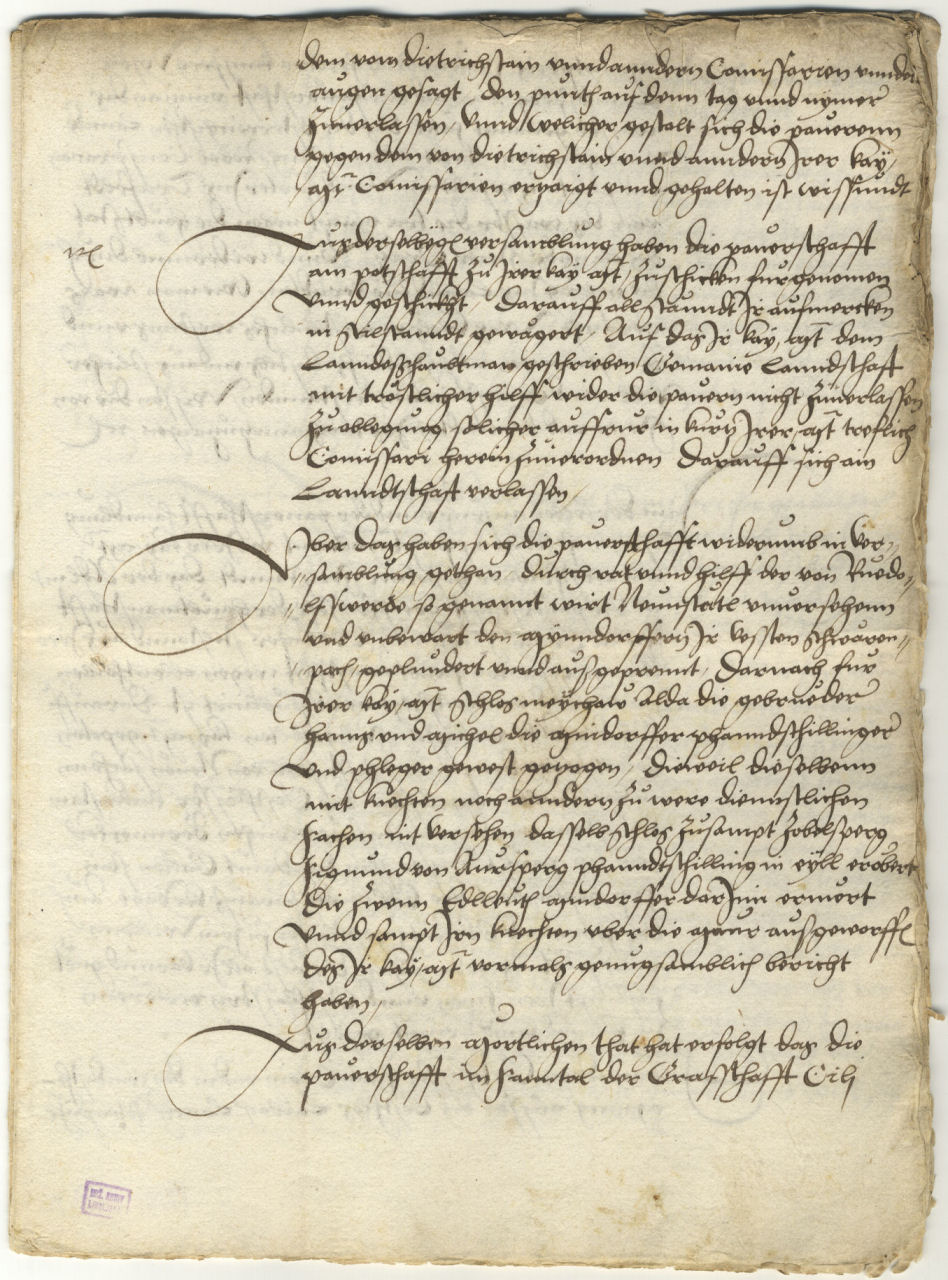 dem vom Dietrichstain vnnd anndern Comissarien vnnder
augen gesagt, den punth auf denn tag vnnd nymer
Zuuerlassen, Vnnd Welicher gestalt sich die pauerenn
gegen dem von Dietrichstain vnnd anndern Irer kay.
Mt Comissarien erzaigt vnnd gehalten ist wissundt
Aus derselbigen versamblung haben die pauerschafft
ain potschafft zu Irer kay Mt, zuschicken furgenomen
Vnnd geschickht, Darauff all Stanndt Ir aufmercken
in stilstanndt gewägert, Auf das Ir kay. Mt dem
Lanndeßhaubtman geschrieben Gemaine Lanndschaft
mit trostlicher hilff wider die pauern nicht Zuuerlassen
Zu ablegung solicher auffrur in kurtz Irer Mt treflich
Comissari herein Zuuerordnen Darauff sich ain
Lanndtschaft verlassen,
Vber das haben sich die pauerschafft widerumb in Ver-
samblung gethan, Durch rat vnnd hilff der von Ruedo-
lffswerde so genannt wirt Neunstätl vnuersehenn
vnd vnbewart den Mynndorffern Ir Vessten Schwaren-
pach, geplundert vnnd ausgeprennt, Darnach fur
Irer kay. Mt Schlos meychaw Alda die gebrueder
Hanns vnd Michel die Mindorffer phanndschillinger
Vnd phleger gewest getzogen, Dieweil dieselbenn
mit knechten noch anndern zu were dienstlichen
sachen nit versehen dasselb Schlos zusampt Zobelsperg
Sigmund von Aursperg phanndtschilling in eyll erobert
Die zwenn Edlleuth Mindorffer darInn ermort
Vnnd sampt Irn knechten vber die Maur ausgeworffen
Des Ir kay. Mt vormals genugsamblich bericht
haben,
Aus derselben Mortlichen that hat erfolgt das die
pauerschafft im Sanntal der Grafschafft Cili